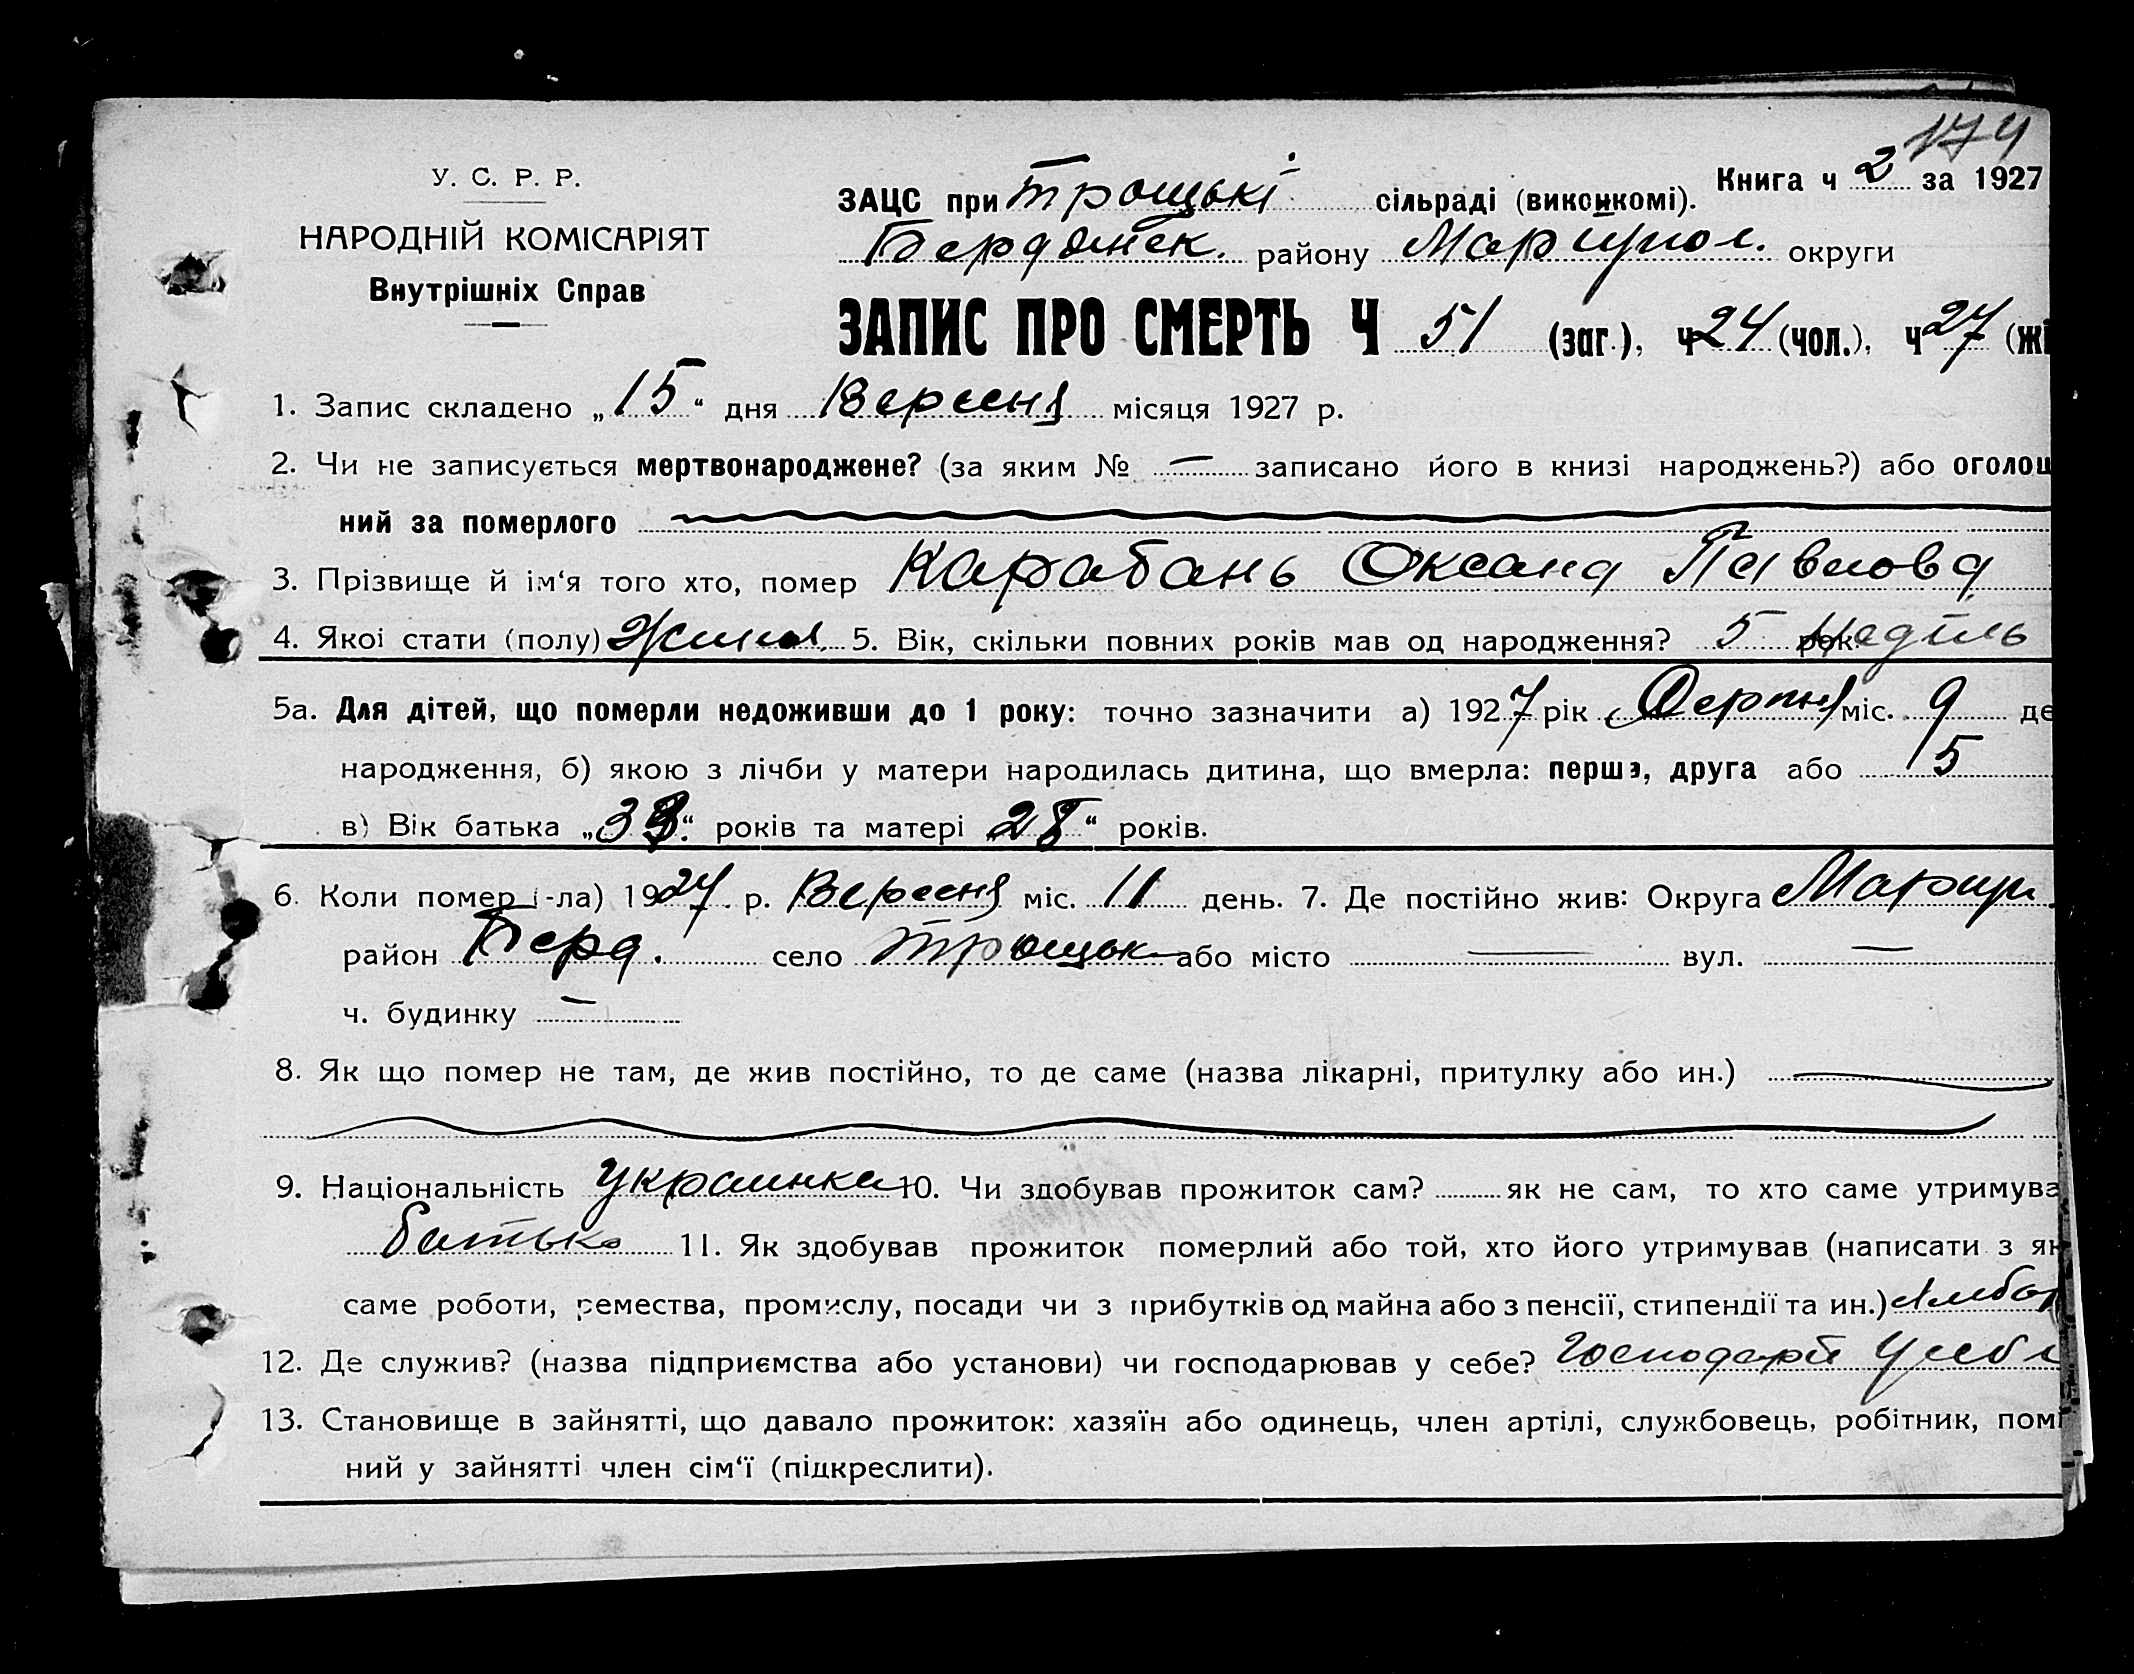 174
У. С. Р. Р.
НАРОДНІЙ КОМІСАРІЯТ
Внутрішніх Справ
Книга ч 2 за 1927
ЗАЦС при Троцькі сільраді (виконкомі).
Бердянск. району Маріупол. округи
ЗАПИС ПРО СМЕРТЬ Ч 51 (заг.), ч 24 (чол.), ч 27 (жі
1. Запис складено „15“ дня Вересня місяця 1927 р.
2. Чи не записується мертвонароджене? (за яким № — записано його в книзі народжень?) або оголош
ний за померлого
3. Прізвище й ім‘я того хто, помер Карабань Оксана Павлова
4. Якої стати (полу) 5. Вік, скільки повних років мав од народження? 5 рок. неділь
5а. Для дітей, що померли недоживши до 1 року: точно зазначити а) 1927 рік Серпня міс. 9 де
народження, б) якою з лічби у матери народилась дитина, що вмерла: перша, друга або 5
в) Вік батька „33“ років та матері „28“ років.
6. Коли помер (-ла) 1927 р. Вересня міс. 11 день. 7. Де постійно жив: Округа Мариуп.
район Берд. село Троцьк або місто — вул. —
ч. будинку —
8. Як що помер не там, де жив постійно, то де саме (назва лікарні, притулку або ин.)
9. Національність украинка 10. Чи здобував прожиток сам? як не сам, то хто саме утримува
батько 11. Як здобував прожиток померлий або той, хто його утримував (написати з як
саме роботи, ремества, промислу, посади чи з прибутків од майна або з пенсії, стипендії та ин.)
12. Де служив? (назва підприємства або установи) чи господарював у себе?
13. Становище в зайнятті, що давало прожиток: хазяїн або одинець, член артілі, службовець, робітник, помі
ний у зайнятті член сім‘ї (підкреслити).